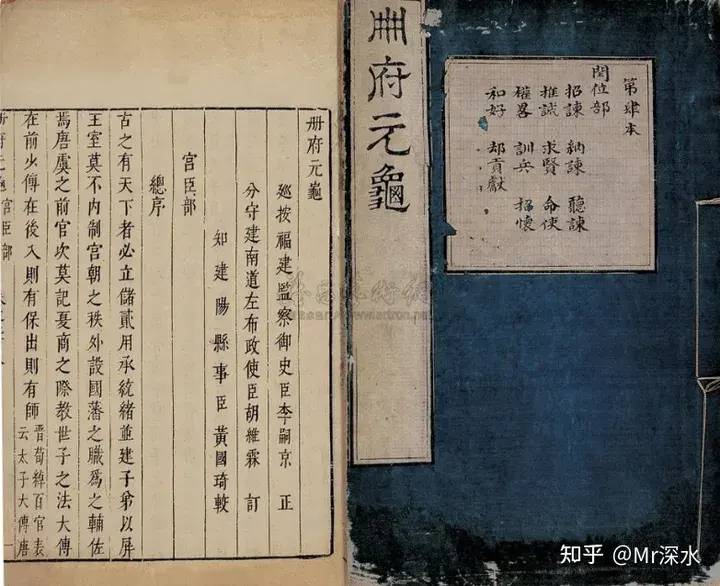 册府元龜
第肆本
閏位部
招諫 納諫 聽諫
推誠 求賢 命使
權畧 訓兵 招懷
和好 却貢獻
册府元龜
廵按福建監察御史臣李嗣京 正
分守建南道左布政使臣胡維霖 訂
知建陽縣事臣黃國琦較
宮臣部
總序
古之有天下者必立儲貳用承統緒並建子弟以屏
王室莫不内制宮朝之秩外設國藩之職爲之輔佐
焉唐虞之前官次莫記夏商之際教世子之法大傳
在前少傳在後入則有保出則有師
晉荀綽百官表
云太子大傳唐
册府元龜 宮臣部
知乎 @Mr深水